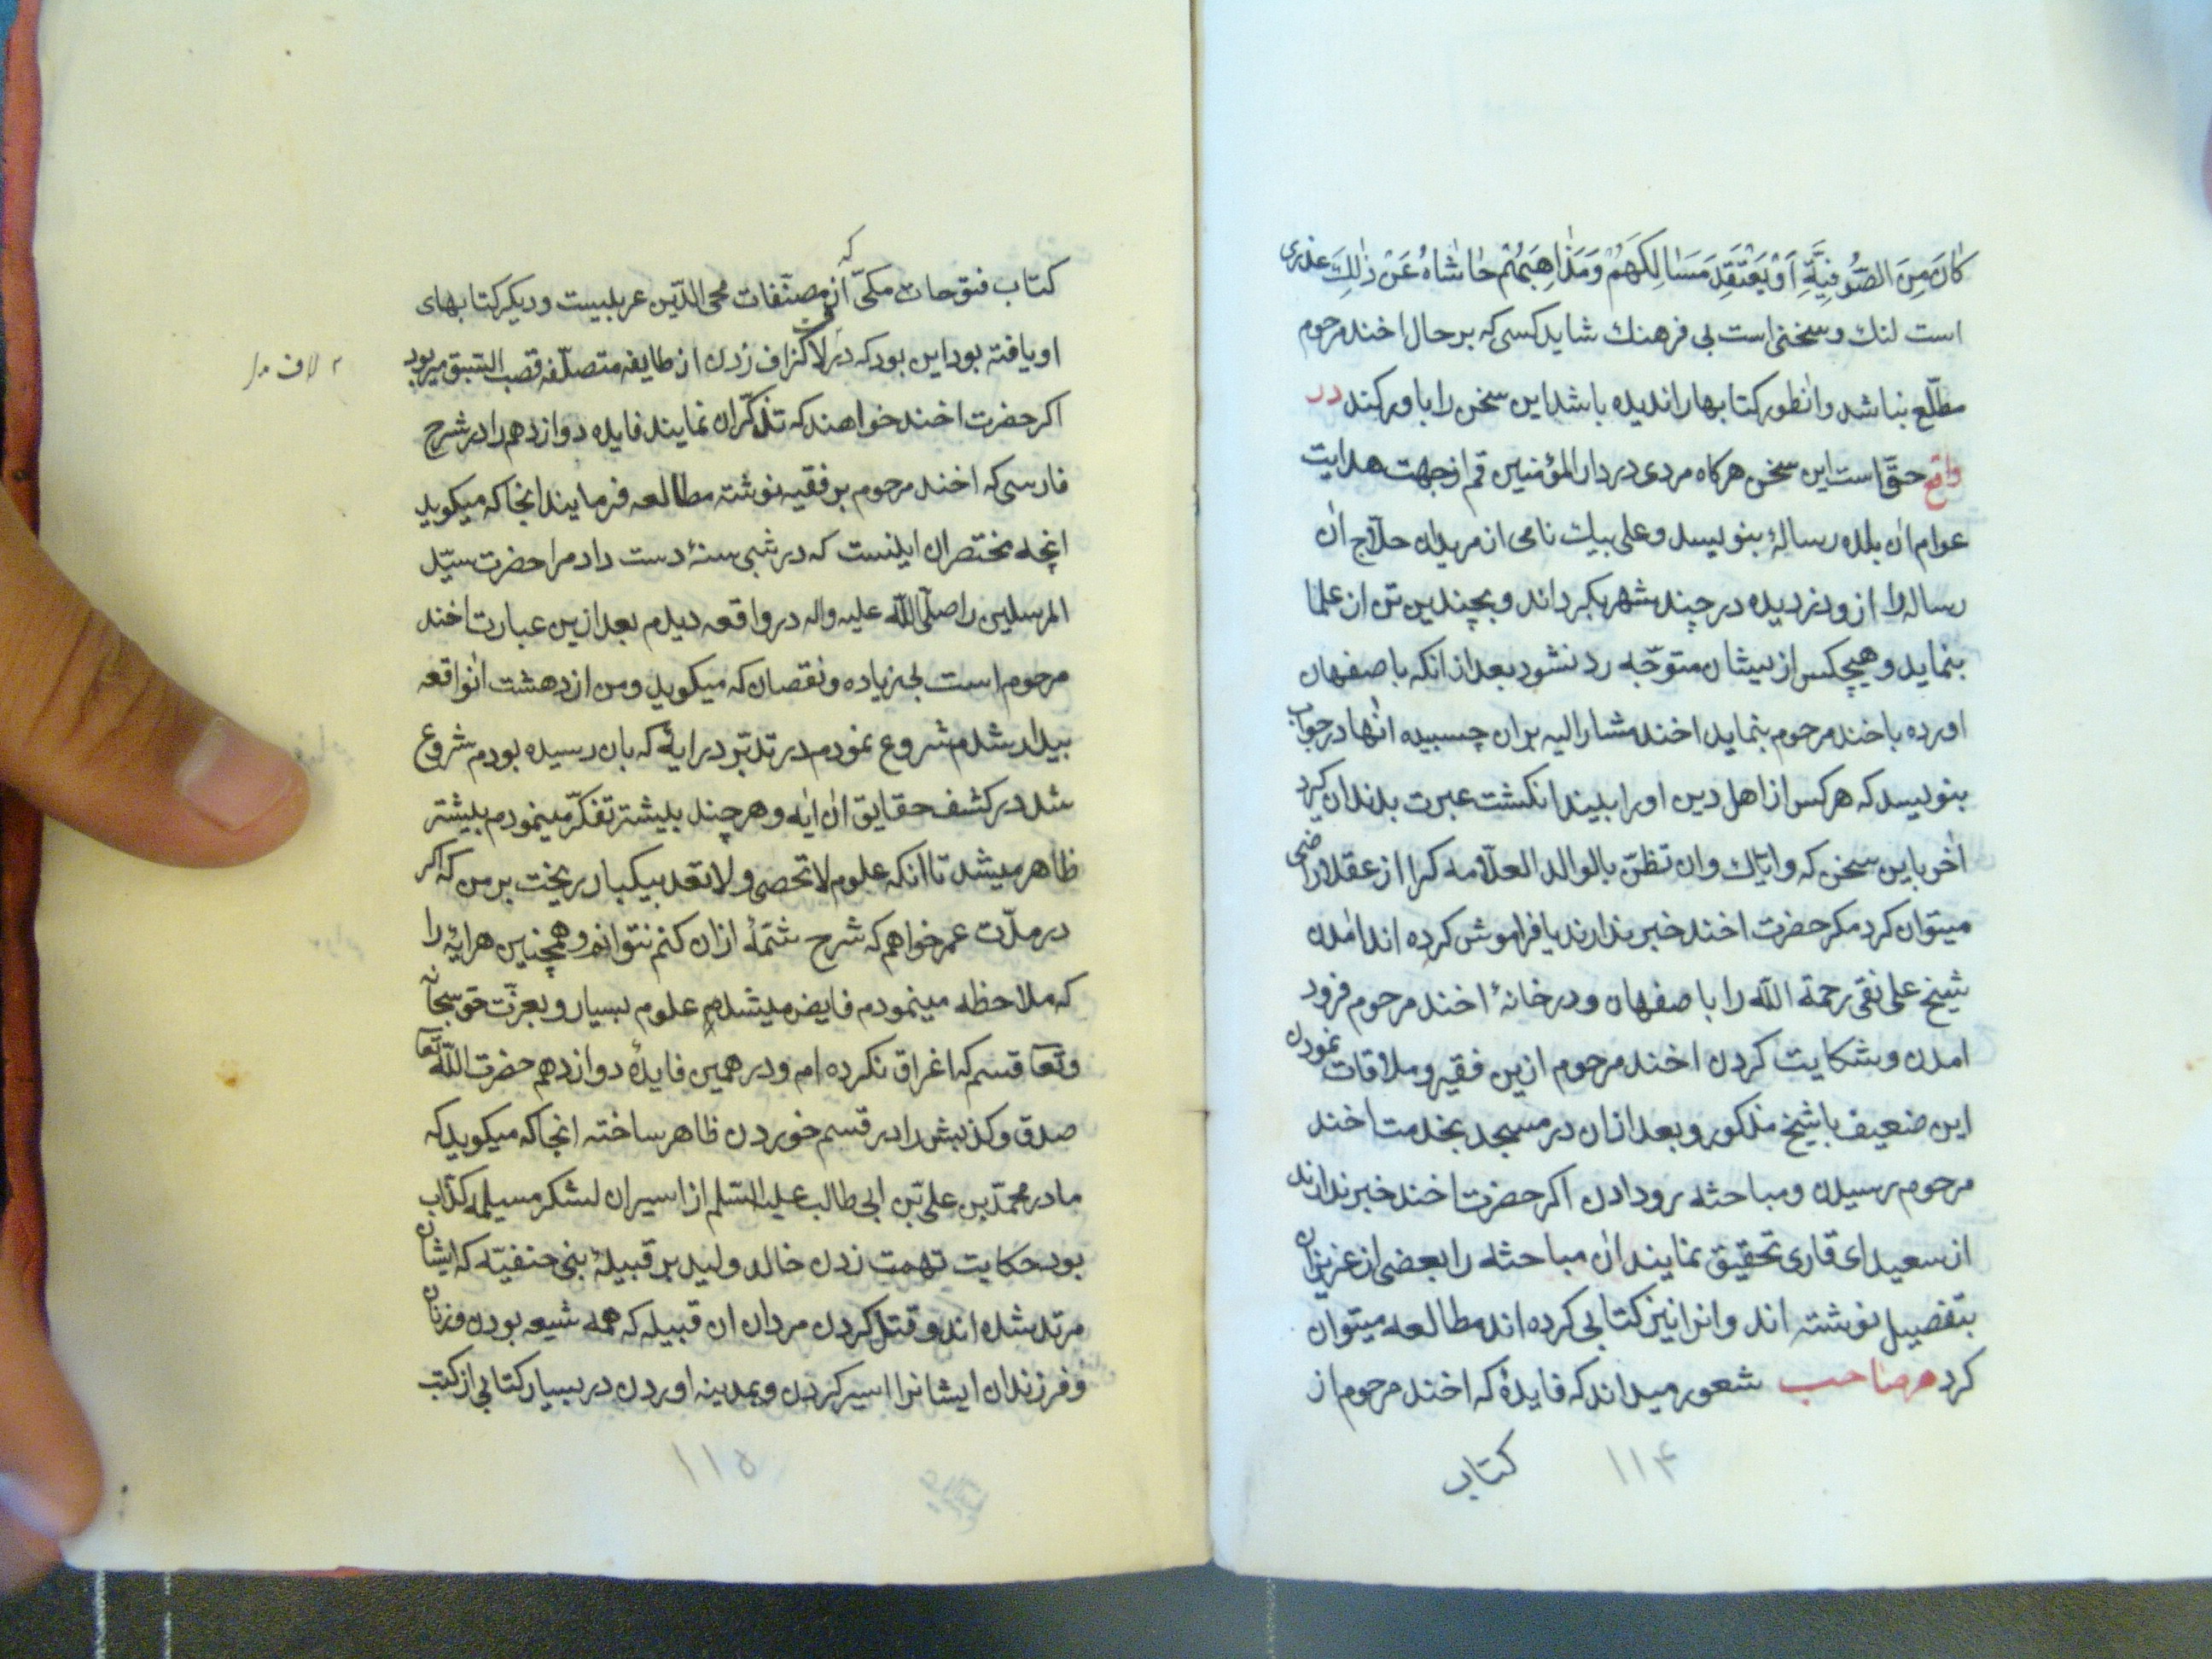 كانَ مِنَ الصُّوفِيَّةِ اَوْ يَعْتَقِدَ مَسَالِكَهُمْ وَمَذاهِبَهُمْ حاشاهُ عَنْ ذٰلِكَ عذری
است لنك و سخنی است بی فرهنك شاید کسی که بر حال اخند مرحوم
مطلّع نباشد و انطور کتابها را ندیده باشد این سخن را باور کند در
واقع حقّ است این سخن هرکاه مردی در دار المؤمنین قم از جهت هدایت
عوام ان بلده رسالهٔ بنویسد و علی بیك نامی از مریدان حلّاج ان
رساله را از و دزدیده در چند شهر بکرداند و بچندین تن از علما
بنماید و هیچکس از یشان متوجّه رد نشود بعد از انکه باصفهان
اورده باخند مرحوم بنماید اخند مشار الیه بران چسبیده انها در جواب
بنویسد که هر کس از اهل دین او را ببیند انکشت عبرت بدندان کیرد
اخر باین سخن که و ایّاك و ان تظنّ بالوالد العلّامه کرا از عقلا راضی
میتوان کرد مکر حضرت اخند خبر ندارند یا فراموش کرده اند امدن
شیخ علی نقی رحمة اللّه را باصفهان و در خانهٔ اخند مرحوم فرود
امدن و شکایت کردن اخند مرحوم ازین فقیر و ملاقات نمودن
این ضعیف با شیخ مذکور و بعد ازان در مسجد بخدمت اخند
مرحوم رسیدن و مباحثه رو دادن اکر حضرت اخند خبر ندارند
از سعیدای قاری تحقیق نمایند ان مباحثه را بعضی از عزیزان
بتفصیل نوشته اند و انرا نیز کتابی کرده اند مطالعه میتوان
کرد هر صاحب شعور میداند که فایدهٔ که اخند مرحوم از
کتاب
۱۱۴
که
کتاب فتوحات مکّی از مصنّفات محی الدّین عربیست و دیکر کتابهای
او یافته بود این بود که در لاف کزاف زدن از طایفه متصلّفه قصب السّبق میربود
اکر حضرت اخند خواهند که تذکّر ان نمایند فایده دوازدهم را در شرح
فارسی که اخند مرحوم بر فقیه نوشته مطالعه فرمایند انجا که میکوید
انچه مختصر ان اینست که در شبی سنهٔ دست داد مرا حضرت سیّد
المرسلین را صلّی اللّه علیه و اله در واقعه دیدم بعد ازین عبارت اخند
مرحوم است بی زیاده و نقصان که میکوید و من از دهشت انواقعه
بیدار شدم شروع نمودم در تدبّر در ایهٔ که بان رسیده بودم شروع
شد در کشف حقایق ان ایه و هر چند بیشتر تفکّر مینمودم بیشتر
ظاهر میشد تا انکه علوم لا تحصی و لا تعد بیکبار ریخت بر من که اکر
در مدّت عمر خواهم که شرح شتمهٔ ازان کنم نتوانم و همچنین هر ایهٔ را
که ملاحظه مینمودم فایض میشدم علوم بسیار و بعزّت حق سبحانه
و تعا قسم که اغراق نکرده ام و در همین فایدهٔ دوازدهم حضرت اللّه تعا
صدق و کذبش را در قسم خوردن ظاهر ساخته انجا که میکوید که
مادر محمّد بن علی بن ابی طالب علیه السّلم از اسیران لشکر مسیلمه کذّاب
بود حکایت تهمت زدن خالد ولید بر قبیلهٔ بنی حنفیّه که ایشان
مرتد شده اند و قتل کردن مردان ان قبیله که همه شیعه بودن و زنان
و فرزندان ایشانرا اسیر کردن و بمدینه اوردن در بسیار کتابی از کتب
۱۱۵